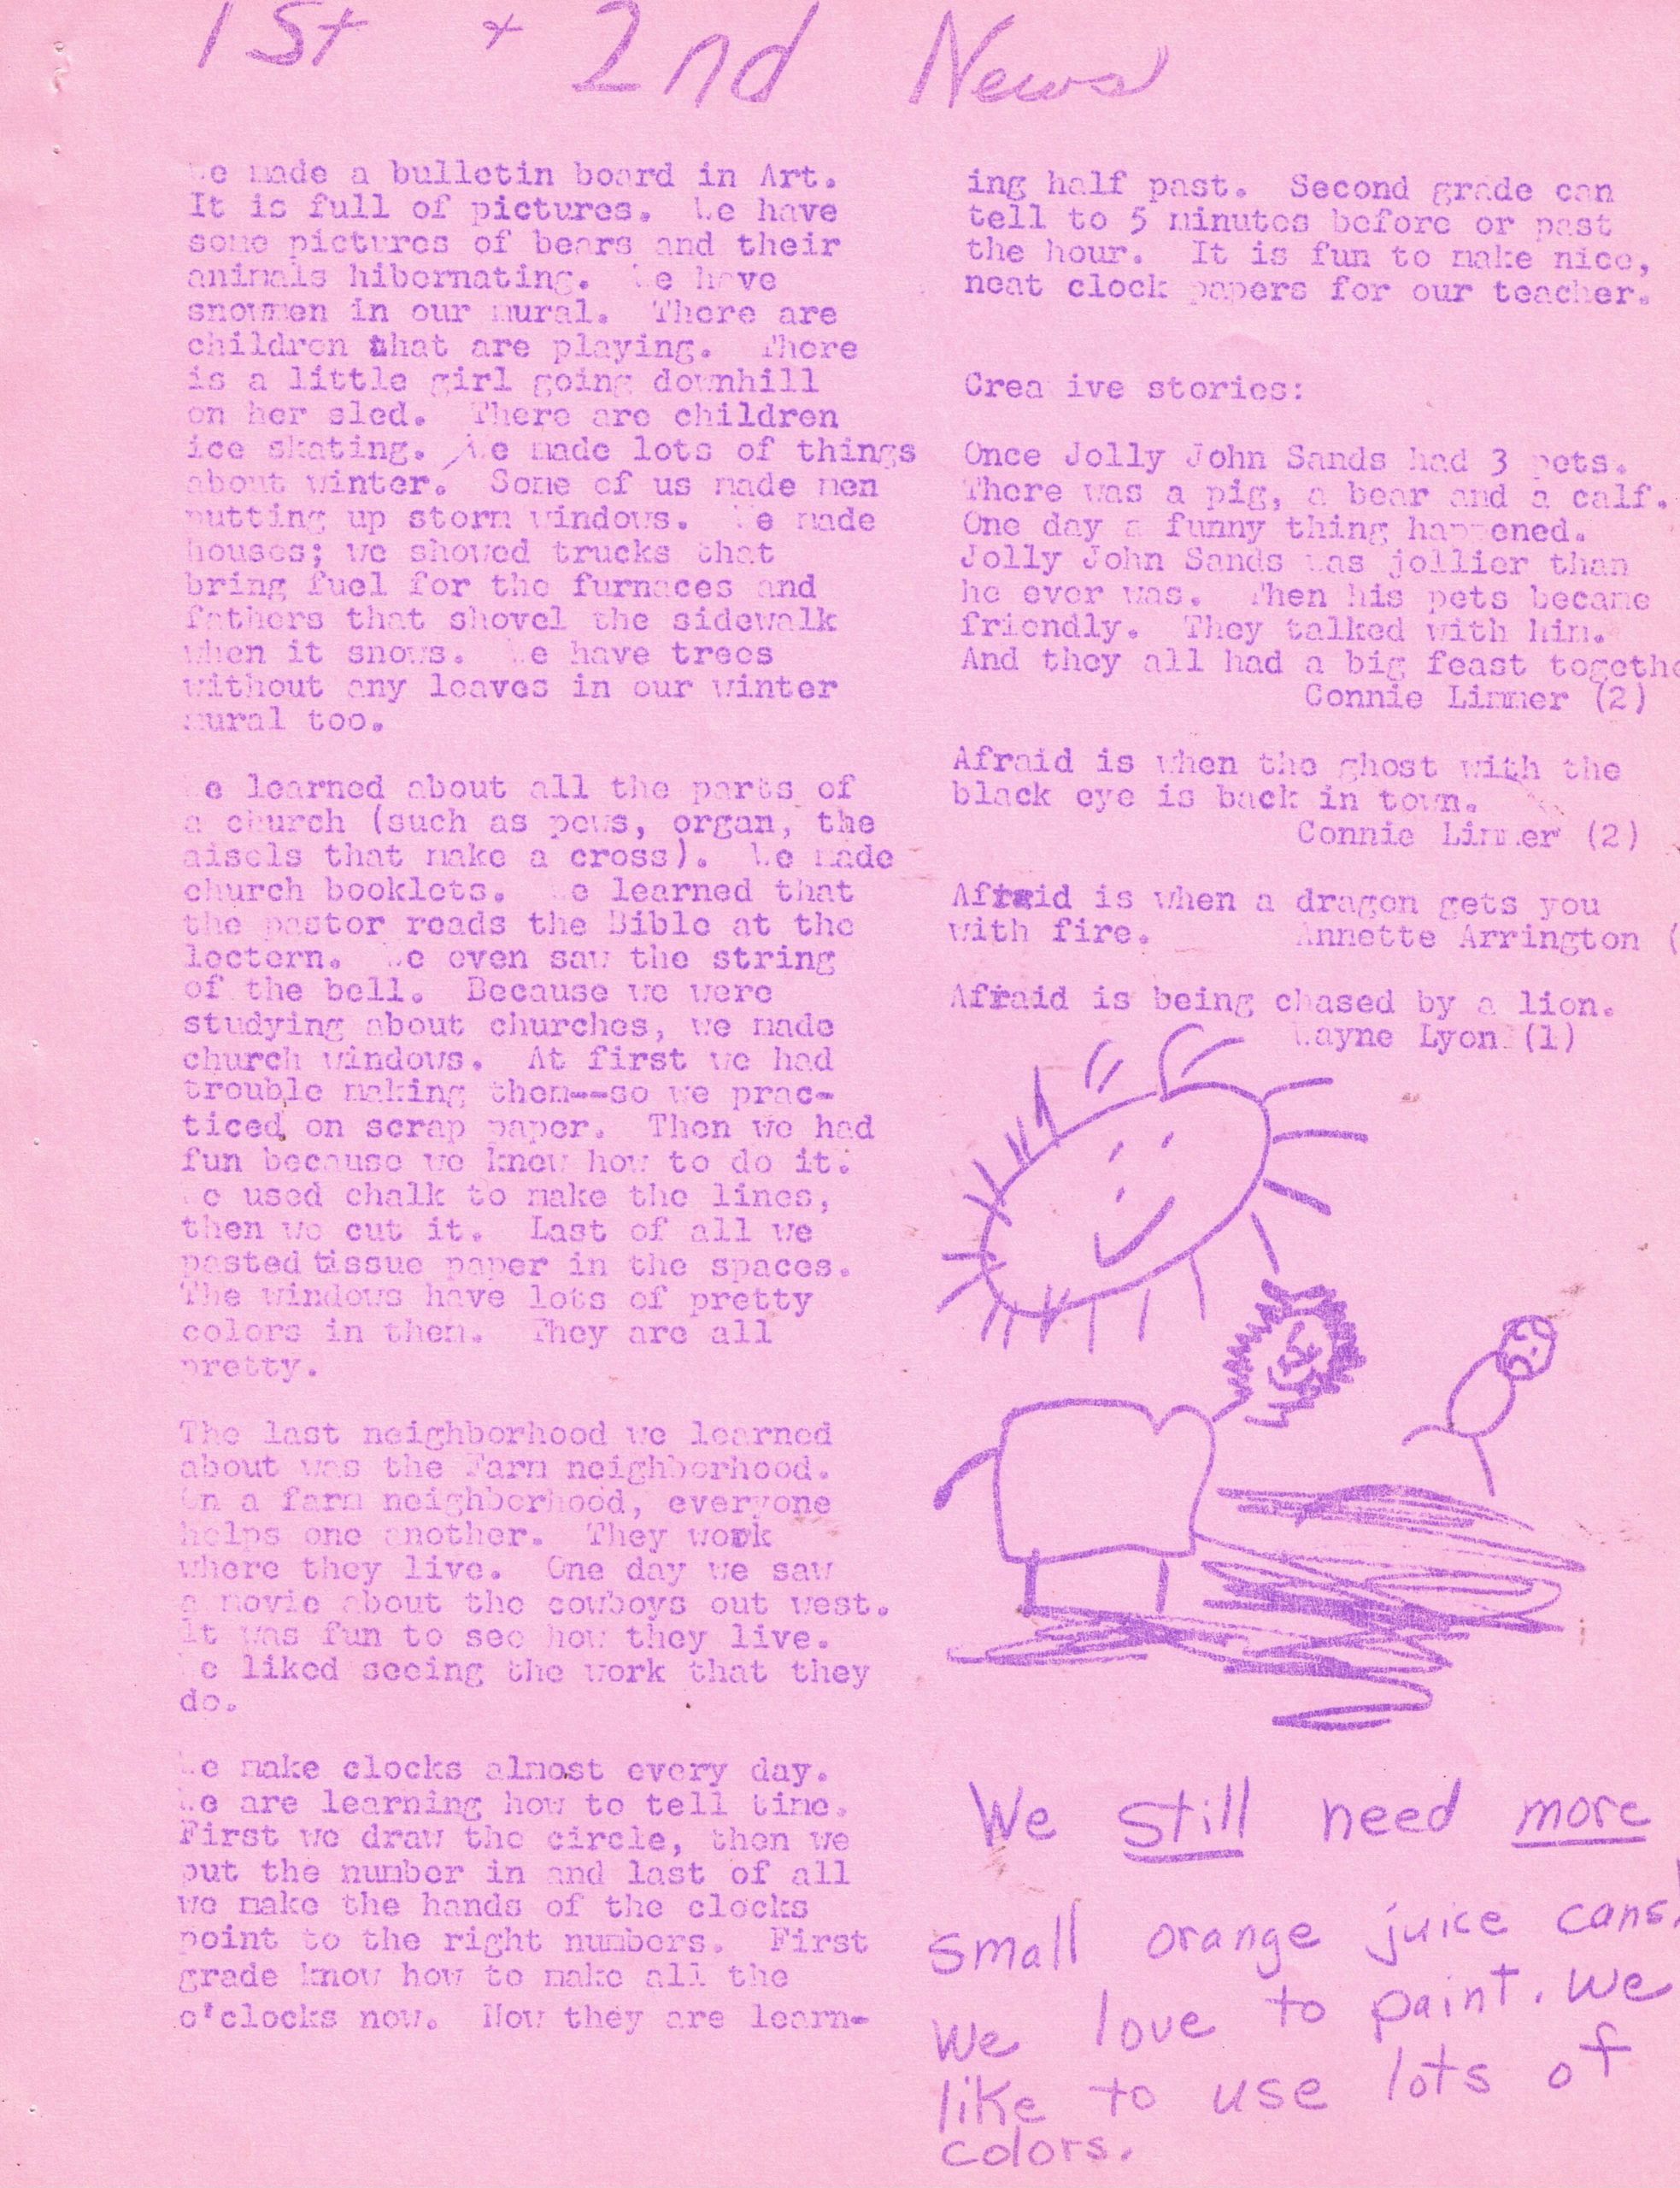 1st + 2nd News
We made a bulletin board in Art.
It is full of pictures. We have
some pictures of bears and their
animals hibernating. We have
snowmen in our mural. There are
children that are playing. There
is a little girl going downhill
on her sled. There are children
ice skating. We made lots of things
about winter. Some of us made men
putting up storm windows. We made
houses; we showed trucks that
bring fuel for the furnaces and
fathers that shovel the sidewalk
when it snows. We have trees
without any leaves in our winter
mural too.
We learned about all the parts of
a church (such as pews, organ, the
aisels that make a cross). We made
church booklets. We learned that
the pastor reads the Bible at the
lectern. We even saw the string
of the bell. Because we were
studying about churches, we made
church windows. At first we had
trouble making them--so we prac-
ticed on scrap paper. Then we had
fun because we knew how to do it.
We used chalk to make the lines,
then we cut it. Last of all we
pasted tissue paper in the spaces.
The windows have lots of pretty
colors in them. They are all
pretty.
The last neighborhood we learned
about was the Farm neighborhood.
On a farm neighborhood, everyone
helps one another. They work
where they live. One day we saw
a movie about the cowboys out west.
It was fun to see how they live.
We liked seeing the work that they
do.
We make clocks almost every day.
We are learning how to tell time.
First we draw the circle, then we
put the number in and last of all
we make the hands of the clocks
point to the right numbers. First
grade know how to make all the
o'clocks now. Now they are learn-
ing half past. Second grade can
tell to 5 minutes before or past
the hour. It is fun to make nice,
neat clock papers for our teacher.
Crea ive stories:
Once Jolly John Sands had 3 pets.
There was a pig, a bear and a calf.
One day a funny thing happened.
Jolly John Sands was jollier than
he ever was. Then his pets became
friendly. They talked with him.
And they all had a big feast togethe
Connie Limmer (2)
Afraid is when the ghost with the
black eye is back in town.
Connie Limmer (2)
Afraid is when a dragon gets you
with fire. Annette Arrington (
Afraid is being chased by a lion.
Wayne Lyon (1)
We still need more
small orange juice cans!
We love to paint. We
like to use lots of
colors.